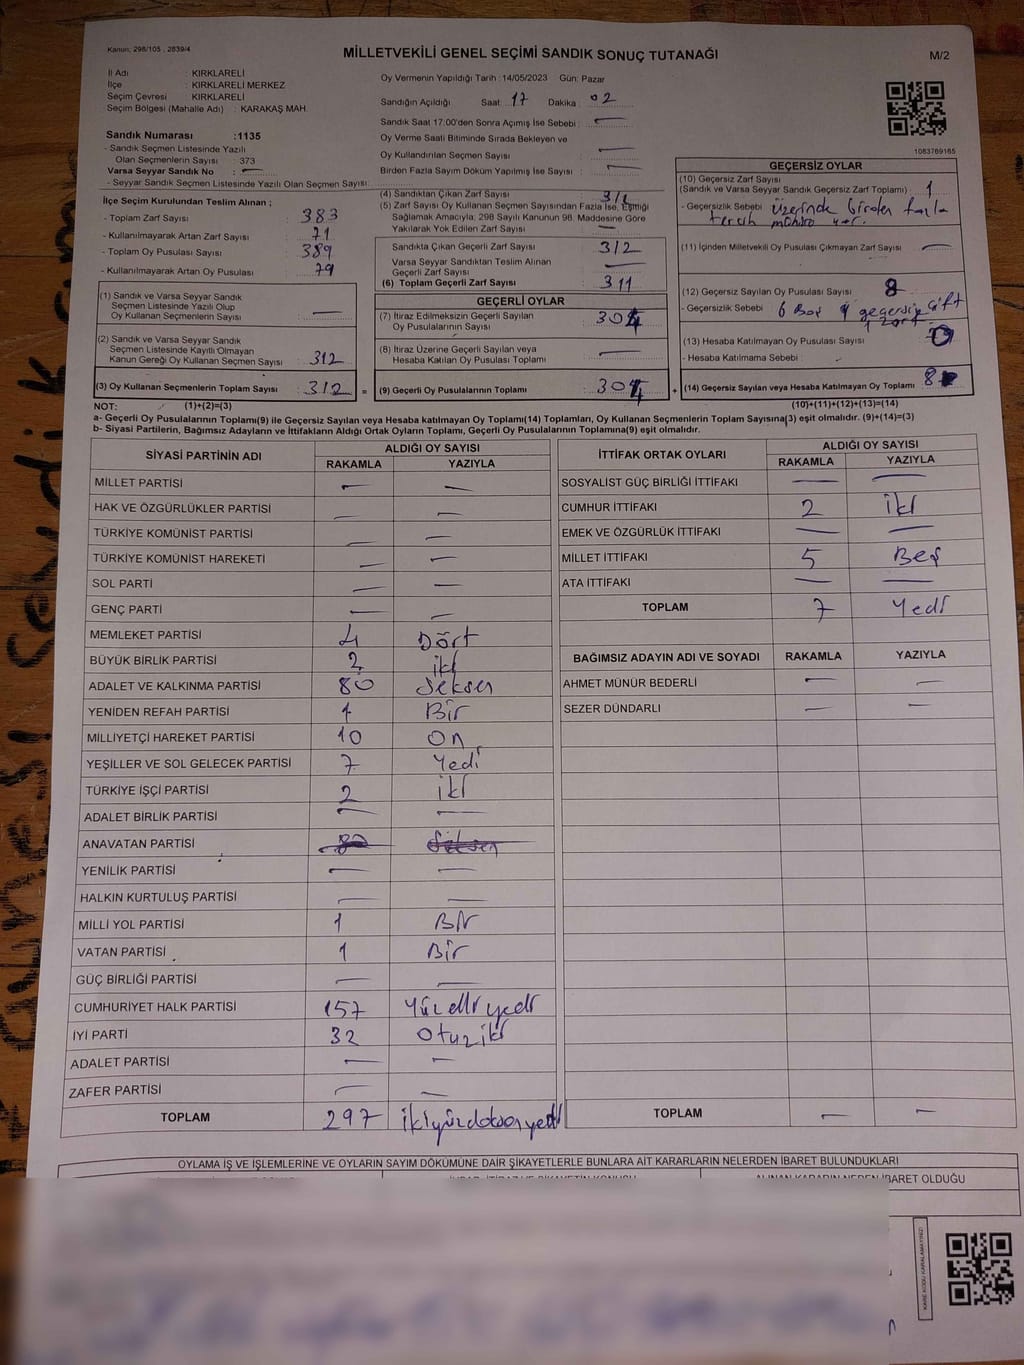 Kanun; 298/105 , 2839/4
MİLLETVEKİLİ GENEL SEÇİMİ SANDIK SONUÇ TUTANAĞI
M/2
İl Adı : KIRKLARELİ
İlçe : KIRKLARELİ MERKEZ
Seçim Çevresi : KIRKLARELİ
Seçim Bölgesi (Mahalle Adı) : KARAKAŞ MAH.
Sandık Numarası :1135
- Sandık Seçmen Listesinde Yazılı
Olan Seçmenlerin Sayısı : 373
Varsa Seyyar Sandık No : —
- Seyyar Sandık Seçmen Listesinde Yazılı Olan Seçmen Sayısı:
Oy Vermenin Yapıldığı Tarih : 14/05/2023 Gün: Pazar
Sandığın Açıldığı Saat 17 Dakika : 02
Sandık Saat 17:00'den Sonra Açımış İse Sebebi : —
Oy Verme Saati Bitiminde Sırada Bekleyen ve
Oy Kullandırılan Seçmen Sayısı —
Birden Fazla Sayım Döküm Yapılmış İse Sayısı : —
1083769165
İlçe Seçim Kurulundan Teslim Alınan ;
- Toplam Zarf Sayısı : 383
- Kullanılmayarak Artan Zarf Sayısı : 71
- Toplam Oy Pusulası Sayısı : 389
- Kullanılmayarak Artan Oy Pusulası : 79
(1) Sandık ve Varsa Seyyar Sandık
Seçmen Listesinde Yazılı Olup
Oy Kullanan Seçmenlerin Sayısı : —
(2) Sandık ve Varsa Seyyar Sandık
Seçmen Listesinde Kayıtlı Olmayan
Kanun Gereği Oy Kullanan Seçmen Sayısı : 312
(3) Oy Kullanan Seçmenlerin Toplam Sayısı : 312 =
(4) Sandıktan Çıkan Zarf Sayısı 312
(5) Zarf Sayısı Oy Kullanan Seçmen Sayısından Fazla İse, Eşitliği
Sağlamak Amacıyla; 298 Sayılı Kanunun 98. Maddesine Göre
Yakılarak Yok Edilen Zarf Sayısı : —
Sandıkta Çıkan Geçerli Zarf Sayısı : 312
Varsa Seyyar Sandıktan Teslim Alınan
Geçerli Zarf Sayısı —
(6) Toplam Geçerli Zarf Sayısı : 311
GEÇERLİ OYLAR
(7) İtiraz Edilmeksizin Geçerli Sayılan
Oy Pusulalarının Sayısı : 304
(8) İtiraz Üzerine Geçerli Sayılan veya
Hesaba Katılan Oy Pusulası Toplamı : —
(9) Geçerli Oy Pusulalarının Toplamı : 304 +
GEÇERSİZ OYLAR
(10) Geçersiz Zarf Sayısı
(Sandık ve Varsa Seyyar Sandık Geçersiz Zarf Toplamı) : 1
- Geçersizlik Sebebi : üzerinde birden fazla
tercih mührü var.
(11) İçinden Milletvekili Oy Pusulası Çıkmayan Zarf Sayısı : —
(12) Geçersiz Sayılan Oy Pusulası Sayısı : 8
- Geçersizlik Sebebi : 6 Boş 1 geçersiz çift
1 zarf
(13) Hesaba Katılmayan Oy Pusulası Sayısı : 0
- Hesaba Katılmama Sebebi :
(14) Geçersiz Sayılan veya Hesaba Katılmayan Oy Toplamı : 8
NOT: (1)+(2)=(3) (10)+(11)+(12)+(13)=(14)
a- Geçerli Oy Pusulalarının Toplamı(9) ile Geçersiz Sayılan veya Hesaba katılmayan Oy Toplamı(14) Toplamları, Oy Kullanan Seçmenlerin Toplam Sayısına(3) eşit olmalıdır. (9)+(14)=(3)
b- Siyasi Partilerin, Bağımsız Adayların ve İttifakların Aldığı Ortak Oyların Toplamı, Geçerli Oy Pusulalarının Toplamına(9) eşit olmalıdır.
SİYASİ PARTİNİN ADI ALDIĞI OY SAYISI
RAKAMLA YAZIYLA
MİLLET PARTİSİ — —
HAK VE ÖZGÜRLÜKLER PARTİSİ — —
TÜRKİYE KOMÜNİST PARTİSİ — —
TÜRKİYE KOMÜNİST HAREKETİ — —
SOL PARTİ — —
GENÇ PARTİ — —
MEMLEKET PARTİSİ 4 Dört
BÜYÜK BİRLİK PARTİSİ 2 iki
ADALET VE KALKINMA PARTİSİ 80 Seksen
YENİDEN REFAH PARTİSİ 1 Bir
MİLLİYETÇİ HAREKET PARTİSİ 10 On
YEŞİLLER VE SOL GELECEK PARTİSİ 7 Yedi
TÜRKİYE İŞÇİ PARTİSİ 2 iki
ADALET BİRLİK PARTİSİ — —
ANAVATAN PARTİSİ 80 Seksen
YENİLİK PARTİSİ — —
HALKIN KURTULUŞ PARTİSİ — —
MİLLİ YOL PARTİSİ 1 Bir
VATAN PARTİSİ 1 Bir
GÜÇ BİRLİĞİ PARTİSİ — —
CUMHURİYET HALK PARTİSİ 157 Yüz elli yedi
İYİ PARTİ 32 Otuz iki
ADALET PARTİSİ — —
ZAFER PARTİSİ — —
TOPLAM 297 ikiyüzdoksanyedi
İTTİFAK ORTAK OYLARI ALDIĞI OY SAYISI
RAKAMLA YAZIYLA
SOSYALİST GÜÇ BİRLİĞİ İTTİFAKI — —
CUMHUR İTTİFAKI 2 iki
EMEK VE ÖZGÜRLÜK İTTİFAKI — —
MİLLET İTTİFAKI 5 Beş
ATA İTTİFAKI — —
TOPLAM 7 Yedi
BAĞIMSIZ ADAYIN ADI VE SOYADI RAKAMLA YAZIYLA
AHMET MÜNÜR BEDERLİ — —
SEZER DÜNDARLI — —
TOPLAM — —
OYLAMA İŞ VE İŞLEMLERİNE VE OYLARIN SAYIM DÖKÜMÜNE DAİR ŞİKAYETLERLE BUNLARA AİT KARARLARIN NELERDEN İBARET BULUNDUKLARI
ALINAN KARARIN NEDEN İBARET OLDUĞU